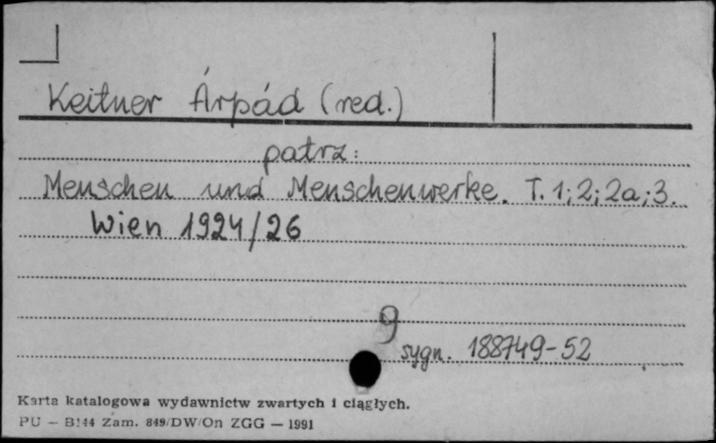 Keitner Árpád (red.)
patrz:
Menschen und Menschenwerke. T. 1; 2; 2a; 3.
Wien 1924/26
9
sygn. 188749-52
Karta katalogowa wydawnictw zwartych i ciągłych.
PU — B144 Zam. 849/DW/On ZGG — 1991